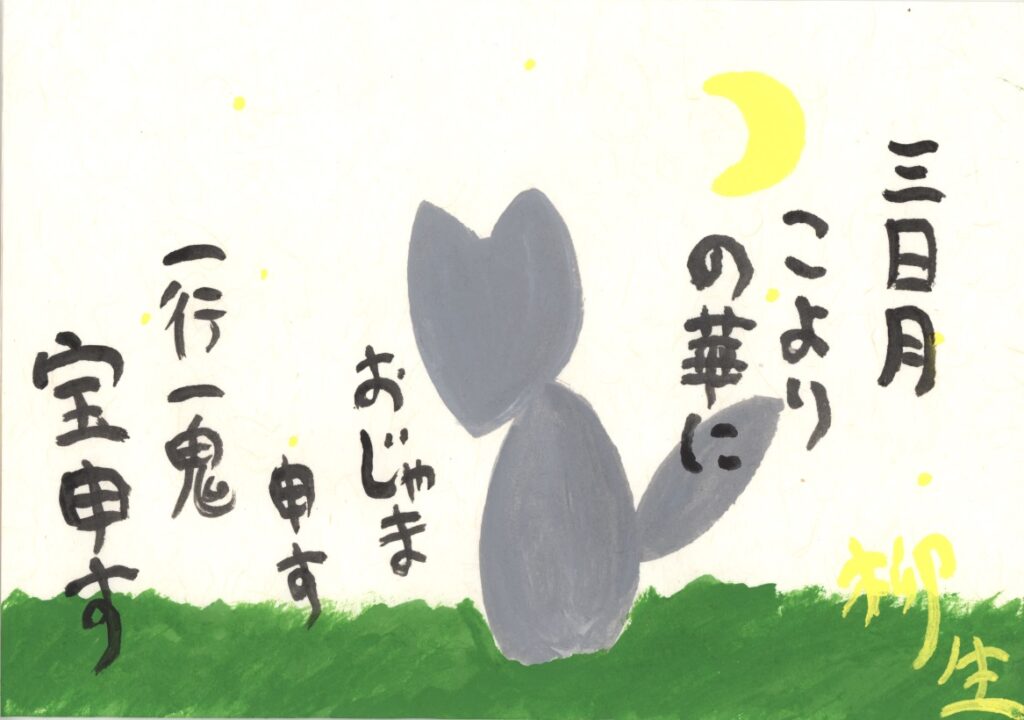 三日月
こより
の華に
おじゃま
申す
一行一鬼
宝申す
柳生